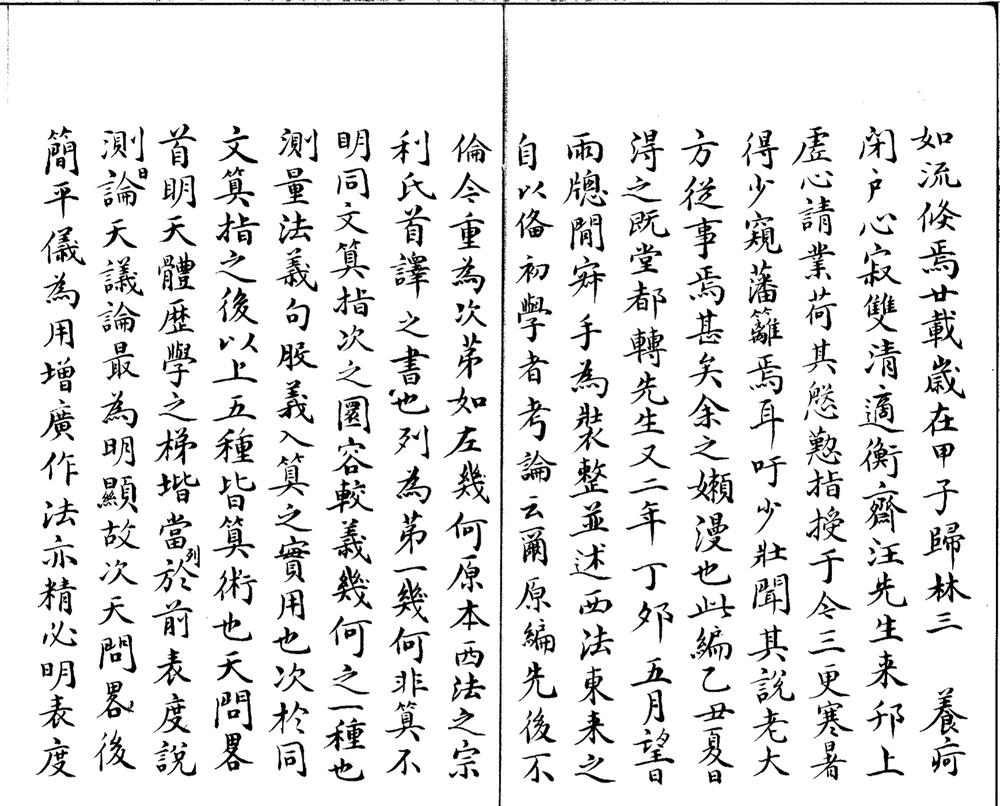 如流倏焉廿載歲在甲子歸林三　養疴
閉戶心寂雙清適衡齋汪先生来邗上
虛心請業荷其慇懃指授于今三更寒暑
得少窺藩籬焉耳吁少壯聞其說老大
方從事焉甚矣余之嬾漫也此編乙丑夏日
淂之既堂都轉先生又二年丁夘五月望日
雨牕閒窂手為裝整並述西法東来之
自以俻初學者考論云爾原編先後不
倫今重為次苐如左幾何原本西法之宗
利氏首譯之書也列為苐一幾何非算不
明同文算指次之圜容較義幾何之一種也
測量法義句股義入算之實用也次於同
文算指之後以上五種皆算術也天問畧
首明天體歷學之梯堦當列於前表度說
測日論天議論最為明顯故次天問畧後
簡平儀為用增廣作法亦精必明表度